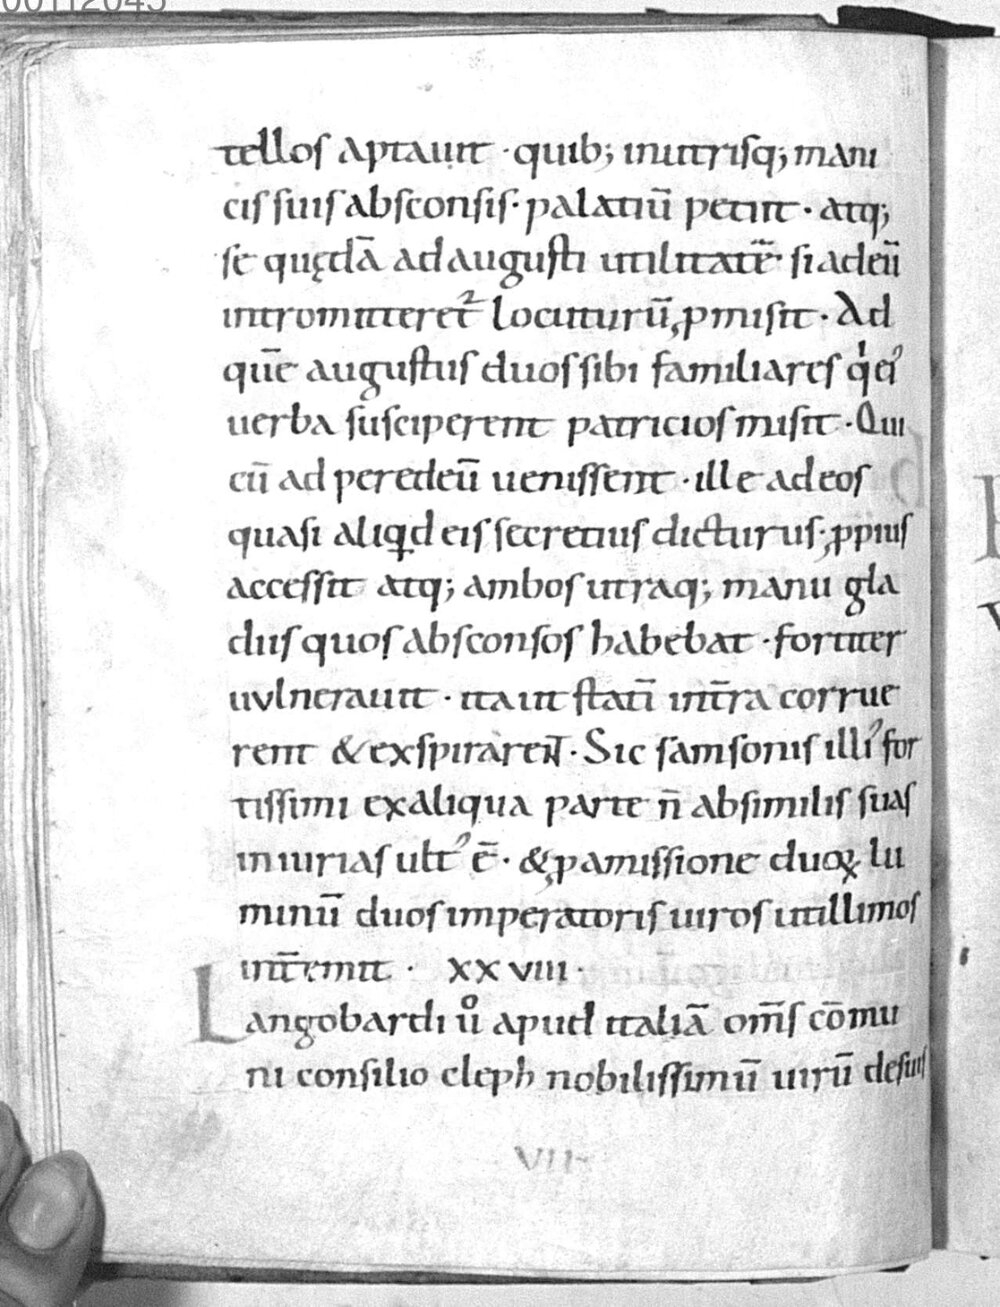 00112045
tellos aptauit · quib; in utrisq; mani
cis suis absconsis · palatiū petiit · atq;
se quędā ad augusti utilitatē si ad eū
intromitteret᷑ locuturū, pmisit · Ad
quē augustus duos sibi familiares q̇ ei᾽
uerba susciperent patricios misit · Qui
cū ad peredeū uenissent · ille ad eos
quasi aliqd eis secretius dicturus · ppius
accessit atq; ambos utraq; manu gla
diis quos absconsos habebat · fortiter
uulnerauit · ita ut statī int̄ra corrue
rent & exspirarent · Sic samsonis illi᾽ for
tissimi ex aliqua parte n̄ absimilis suas
iniurias ult᾽ ē · & p amissione duoꝝ lu
minū duos imperatoris uiros utillimos
int̄emit · xx viiii ·
Langobardi ůo apud italiā om̄s cōmu
ni consilio cleph nobilissimū uirū de suis
VII